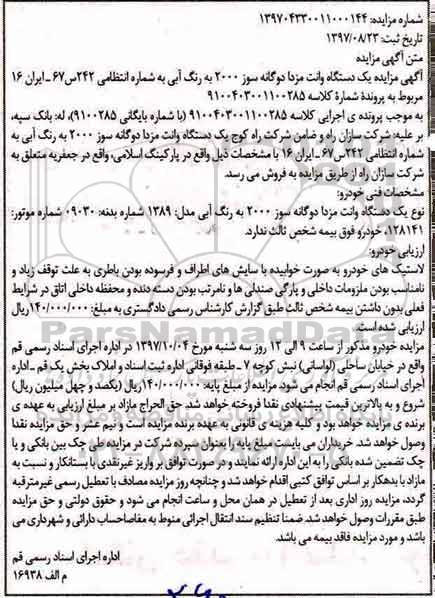 شماره مزایده: ۱۳۹۷۰۴۳۳۰۰۱۱۰۰۰۱۴۴
تاریخ ثبت: ۱۳۹۷/۰۸/۲۳
متن آگهی مزایده
آگهی مزایده یک دستگاه وانت مزدا دوگانه سوز ۲۰۰۰ به رنگ آبی به شماره انتظامی ۲۴۲س۶۷ ـ ایران ۱۶
مربوط به پروندهٔ شمارهٔ کلاسه ۹۱۰۰۴۰۳۰۰۱۱۰۰۲۸۵
به موجب پرونده ی اجرایی کلاسه ۹۱۰۰۴۰۳۰۰۱۱۰۰۲۸۵ (با شماره بایگانی ۹۱۰۰۲۸۵)، له: بانک سپه،
بر علیه: شرکت سازان راه و ضامن شرکت راه کوچ یک دستگاه وانت مزدا دوگانه سوز ۲۰۰۰ به رنگ آبی به
شماره انتظامی ۲۴۲س ۶۷ ـ ایران ۱۶ با مشخصات ذیل واقع در پارکینگ اسلامی، واقع در جعفریه متعلق به
شرکت سازان راه از طریق مزایده به فروش می رسد.
مشخصات فنی خودرو:
نوع یک دستگاه وانت مزدا دوگانه سوز ۲۰۰۰ به رنگ آبی مدل: ۱۳۸۹ شماره بدنه: ۰۹۰۳۰ شماره موتور:
۱۲۸۱۴۱، خودرو فوق بیمه شخص ثالث ندارد.
ارزیابی خودرو:
لاستیک های خودرو به صورت خوابیده با سایش های اطراف و فرسوده بودن باطری به علت توقف زیاد و
نامناسب بودن ملزومات داخلی و پارگی صندلی ها و نامرتب بودن دسته دنده و محفظه داخلی اتاق در شرایط
فعلی بدون داشتن بیمه شخص ثالث طبق گزارش کارشناس رسمی دادگستری به مبلغ: ۱۴۰/۰۰۰/۰۰۰ریال
ارزیابی شده است.
مزایده خودرو مذکور از ساعت ۹ الی ۱۲ روز سه شنبه مورخ ۱۳۹۷/۱۰/۰۴ در اداره اجرای اسناد رسمی قم
واقع در خیابان ساحلی (لواسانی) نبش کوچه ۷ ـ طبقه فوقانی اداره ثبت اسناد و املاک بخش یک قم ـ اداره
اجرای اسناد رسمی قم انجام می شود. مزایده از مبلغ پایه: ۱۴۰/۰۰۰/۰۰۰ ریال (یکصد و چهل میلیون ریال)
شروع و به بالاترین قیمت پیشنهادی نقدا فروخته خواهد شد. حق الحراج مازاد بر مبلغ ارزیابی به عهده ی
برنده ی مزایده خواهد بود و کلیه هزینه ی قانونی به عهده برنده مزایده است و نیم عشر و حق مزایده نقدا
وصول خواهد شد. خریداران می بایست مبلغ پایه را بعنوان سپرده شرکت در مزایده طی چک بین بانکی و یا
چک تضمین شده بانکی را به این اداره ارائه نمایند و در صورت توافق بر واریز غیرنقدی با بستانکار و نسبت به
مازاد با بدهکار بر اساس توافق کتبی اقدام خواهد شد و چنانچه روز مزایده مصادف با تعطیل رسمی غیرمترقبه
گردد، مزایده روز اداری بعد از تعطیل در همان محل و ساعت انجام می شود و حقوق دولتی و حق مزایده
طبق مقررات وصول خواهد شد. ضمنا تنظیم سند انتقال اجرائی منوط به مفاصاحساب دارائی و شهرداری می
باشد و مورد مزایده فاقد بیمه می باشد.
اداره اجرای اسناد رسمی قم
م الف ۱۶۹۳۸
ParsNamadData